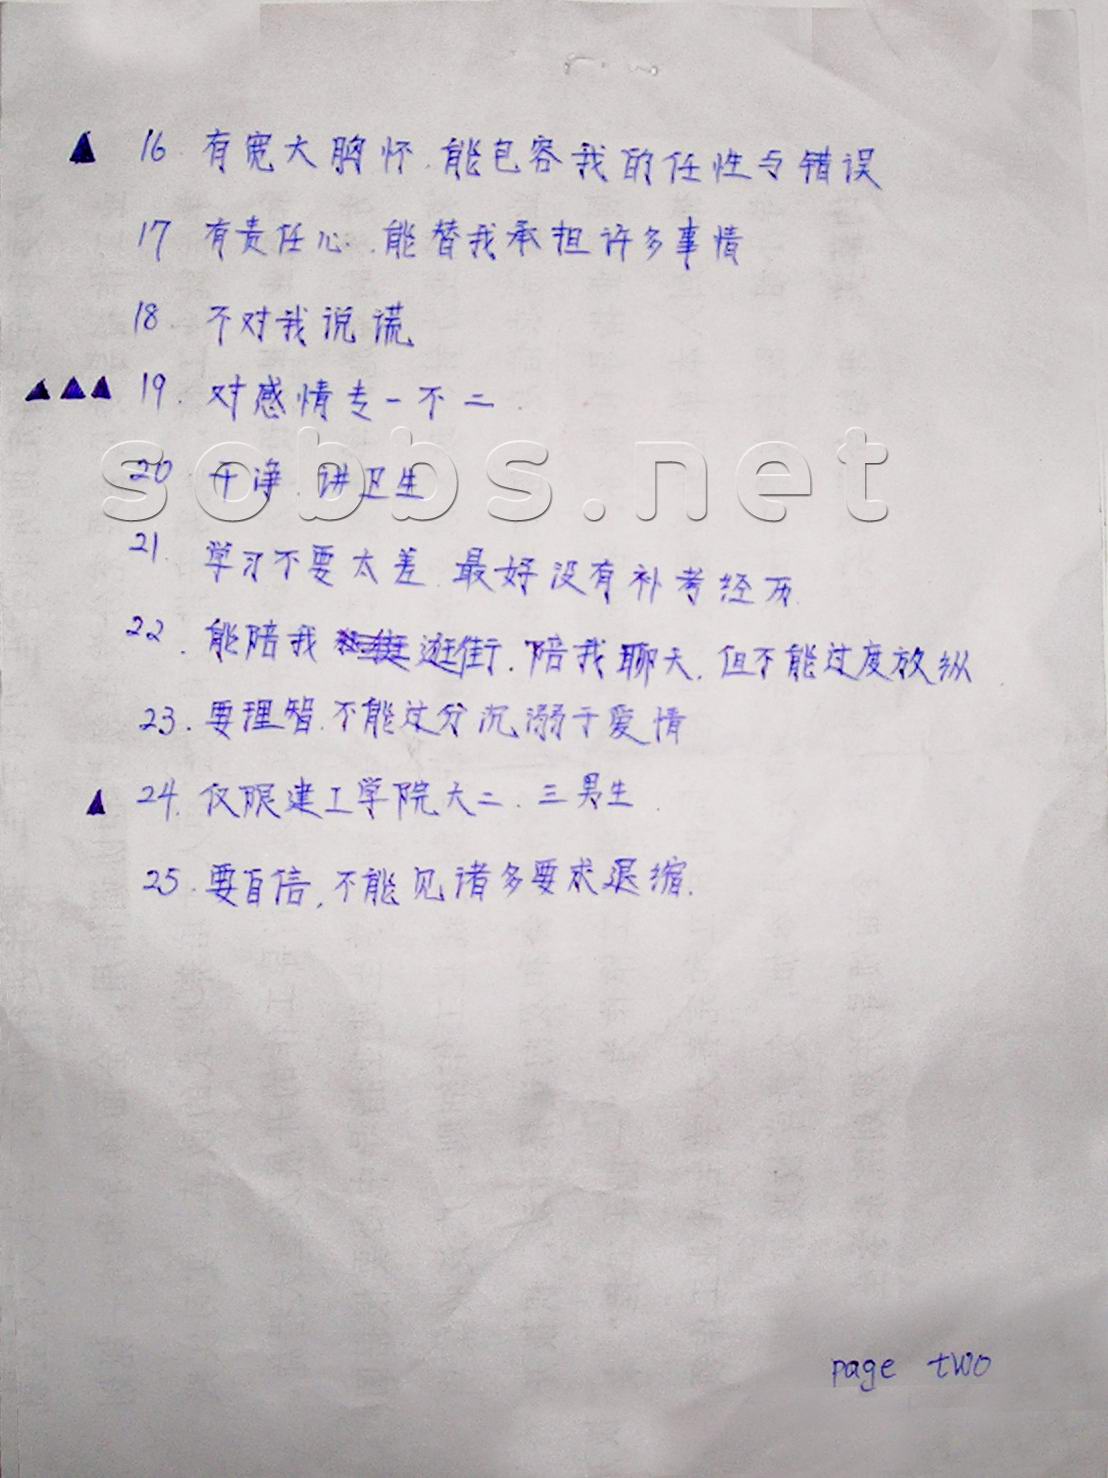 ▲ 16. 有宽大胸怀.能包容我的任性与错误
17 有责任心.能替我承担许多事情
18. 不对我说谎
▲▲▲ 19. 对感情专一不二.
sobbs.net
20 干净.讲卫生
21. 学习不要太差.最好没有补考经历.
22. 能陪我逛街.陪我聊天.但不能过度放纵
23. 要理智.不能过分沉溺于爱情
▲ 24. 仅限建工学院大二.三男生.
25. 要自信,不能见诸多要求退缩.
page two